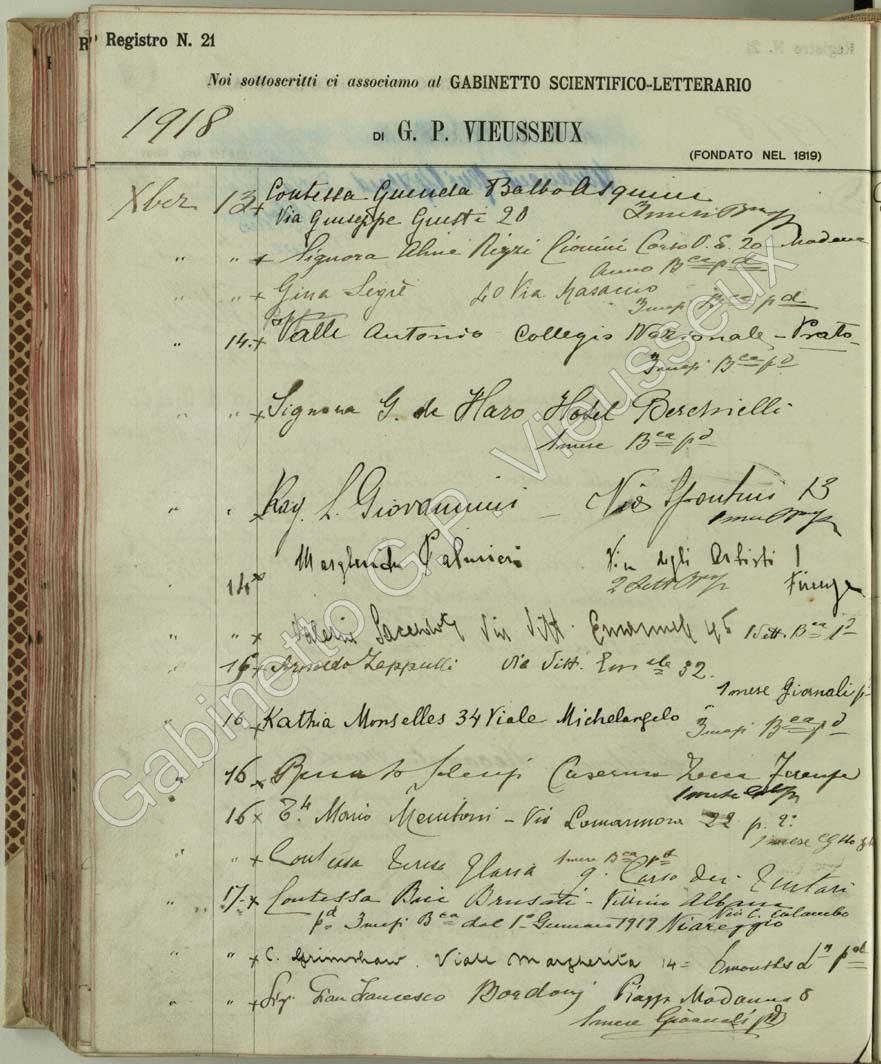 Registro N. 21
Noi sottoscritti ci associamo al GABINETTO SCIENTIFICO-LETTERARIO
1918
DI G. P. VIEUSSEUX
(FONDATO NEL 1819)
Xber 13 x Contessa Balbo Asquini
Via Giuseppe Giusti 20 3 mesi
" " x Signora Corso V. E. 20 Modena
Anno Bca pd
" " x Gina Segrè 40 Via Masaccio
3 mesi Bca pd
" 14. x Valle Antonio Collegio Nazionale - Prato
3 mesi Bca pd
" " x Signora G. de Haro Hotel Berchielli
1 mese Bca pd
" " x Rag. L. Giovannini - Via Spontini 13
1 mese
14 x Margherita Palmieri Via degli Artisti 1
2 Sett. Firenze
" " x Valeria Sacerdote Via Vitt. Emanuele 45 1 Sett. Bca pd
" 16 x Zappulli Via Vitt. Em ele 32.
1 mese Giornali
" 16 x Kathia Monselles 34 Viale Michelangelo 3 mesi Bca pd
" 16 x Caserma Zecca Firenze
1 mese
" 16 x Mario - Via Lamarmora 22 p. 2°
1 mese
" x Contessa Teresa 1 mese Bca pd 9. Corso dei Tintori
17 x Contessa Brusati - Villino
Via C. Colombo
pd 3 mesi Bca dal 1° Gennaio 1919 Viareggio
" " x C. Grimshaw. Viale Margherita 14 = 6 months
" " x Gian Francesco Bordoni Piazza Madonna 8
1 mese Giornali pd
Gabinetto G.P. Vieusseux